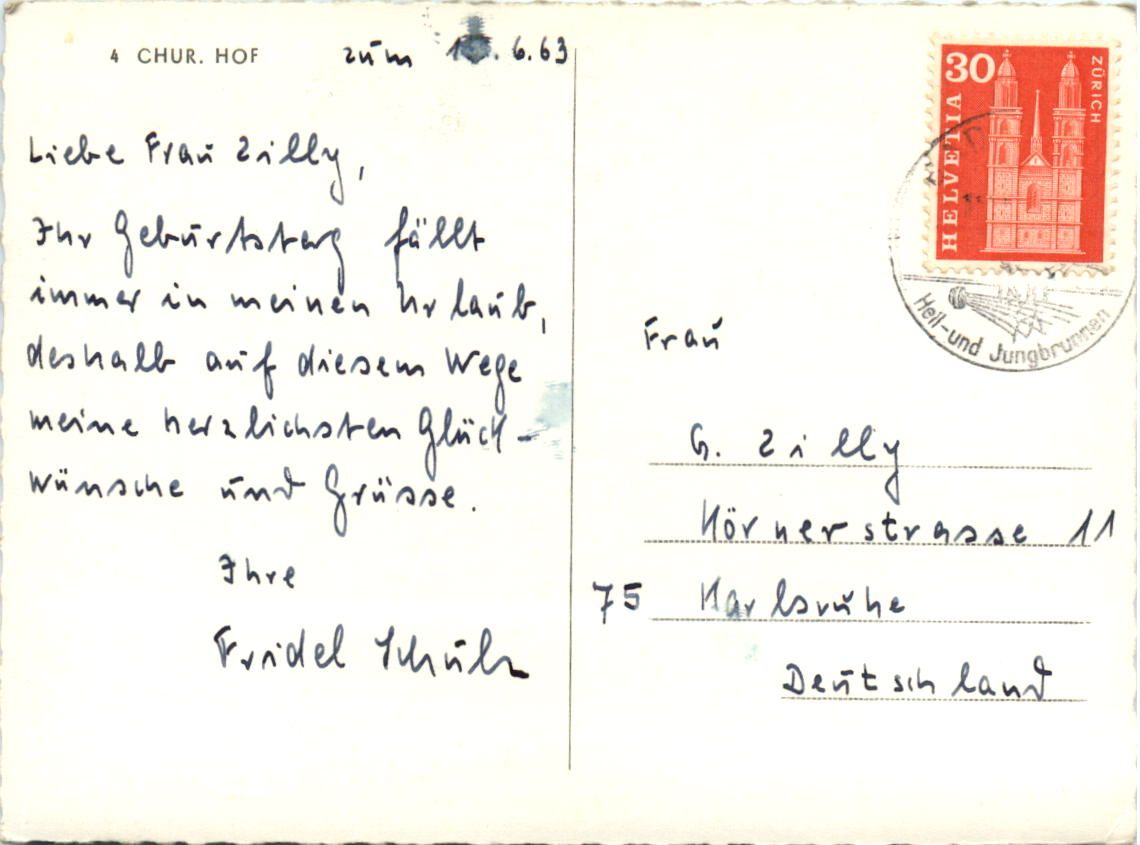 4 CHUR. HOF
zum 6.63
Liebe Frau Zilly,
Ihr Geburtstag fällt
immer in meinen Urlaub,
deshalb auf diesem Wege
meine herzlichsten Glück-
wünsche und Grüsse.
Ihre
Fridel Schulz
30
HELVETIA
ZÜRICH
Heil-und Jungbrunnen
Frau
G. Zilly
Körnerstrasse 11
75 Karlsruhe
Deutschland